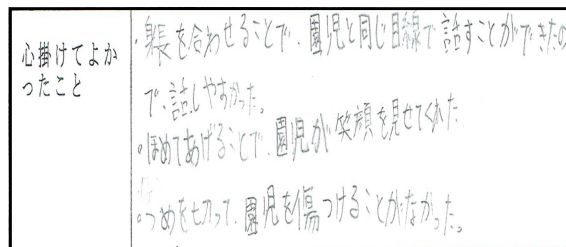 心掛けてよか
ったこと
・身長を合わせることで、園児と同じ目線で話すことができたの
で、話しやすかった。
・ほめてあげることで、園児が笑顔を見せてくれた
・つめを切って、園児を傷つけることがなかった。